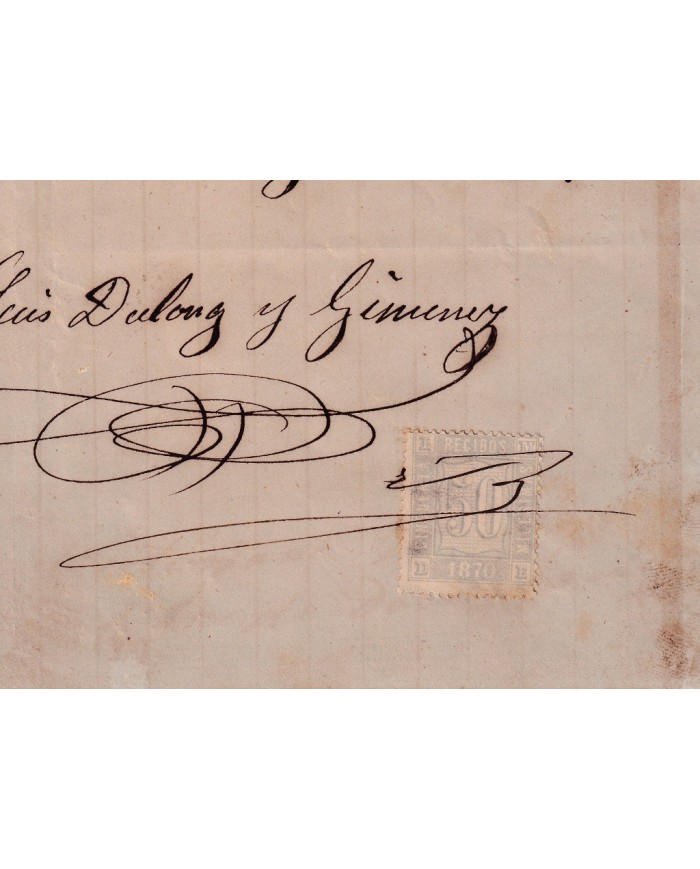 Luis Dulong y Gimenez
RECIBOS
50
1870